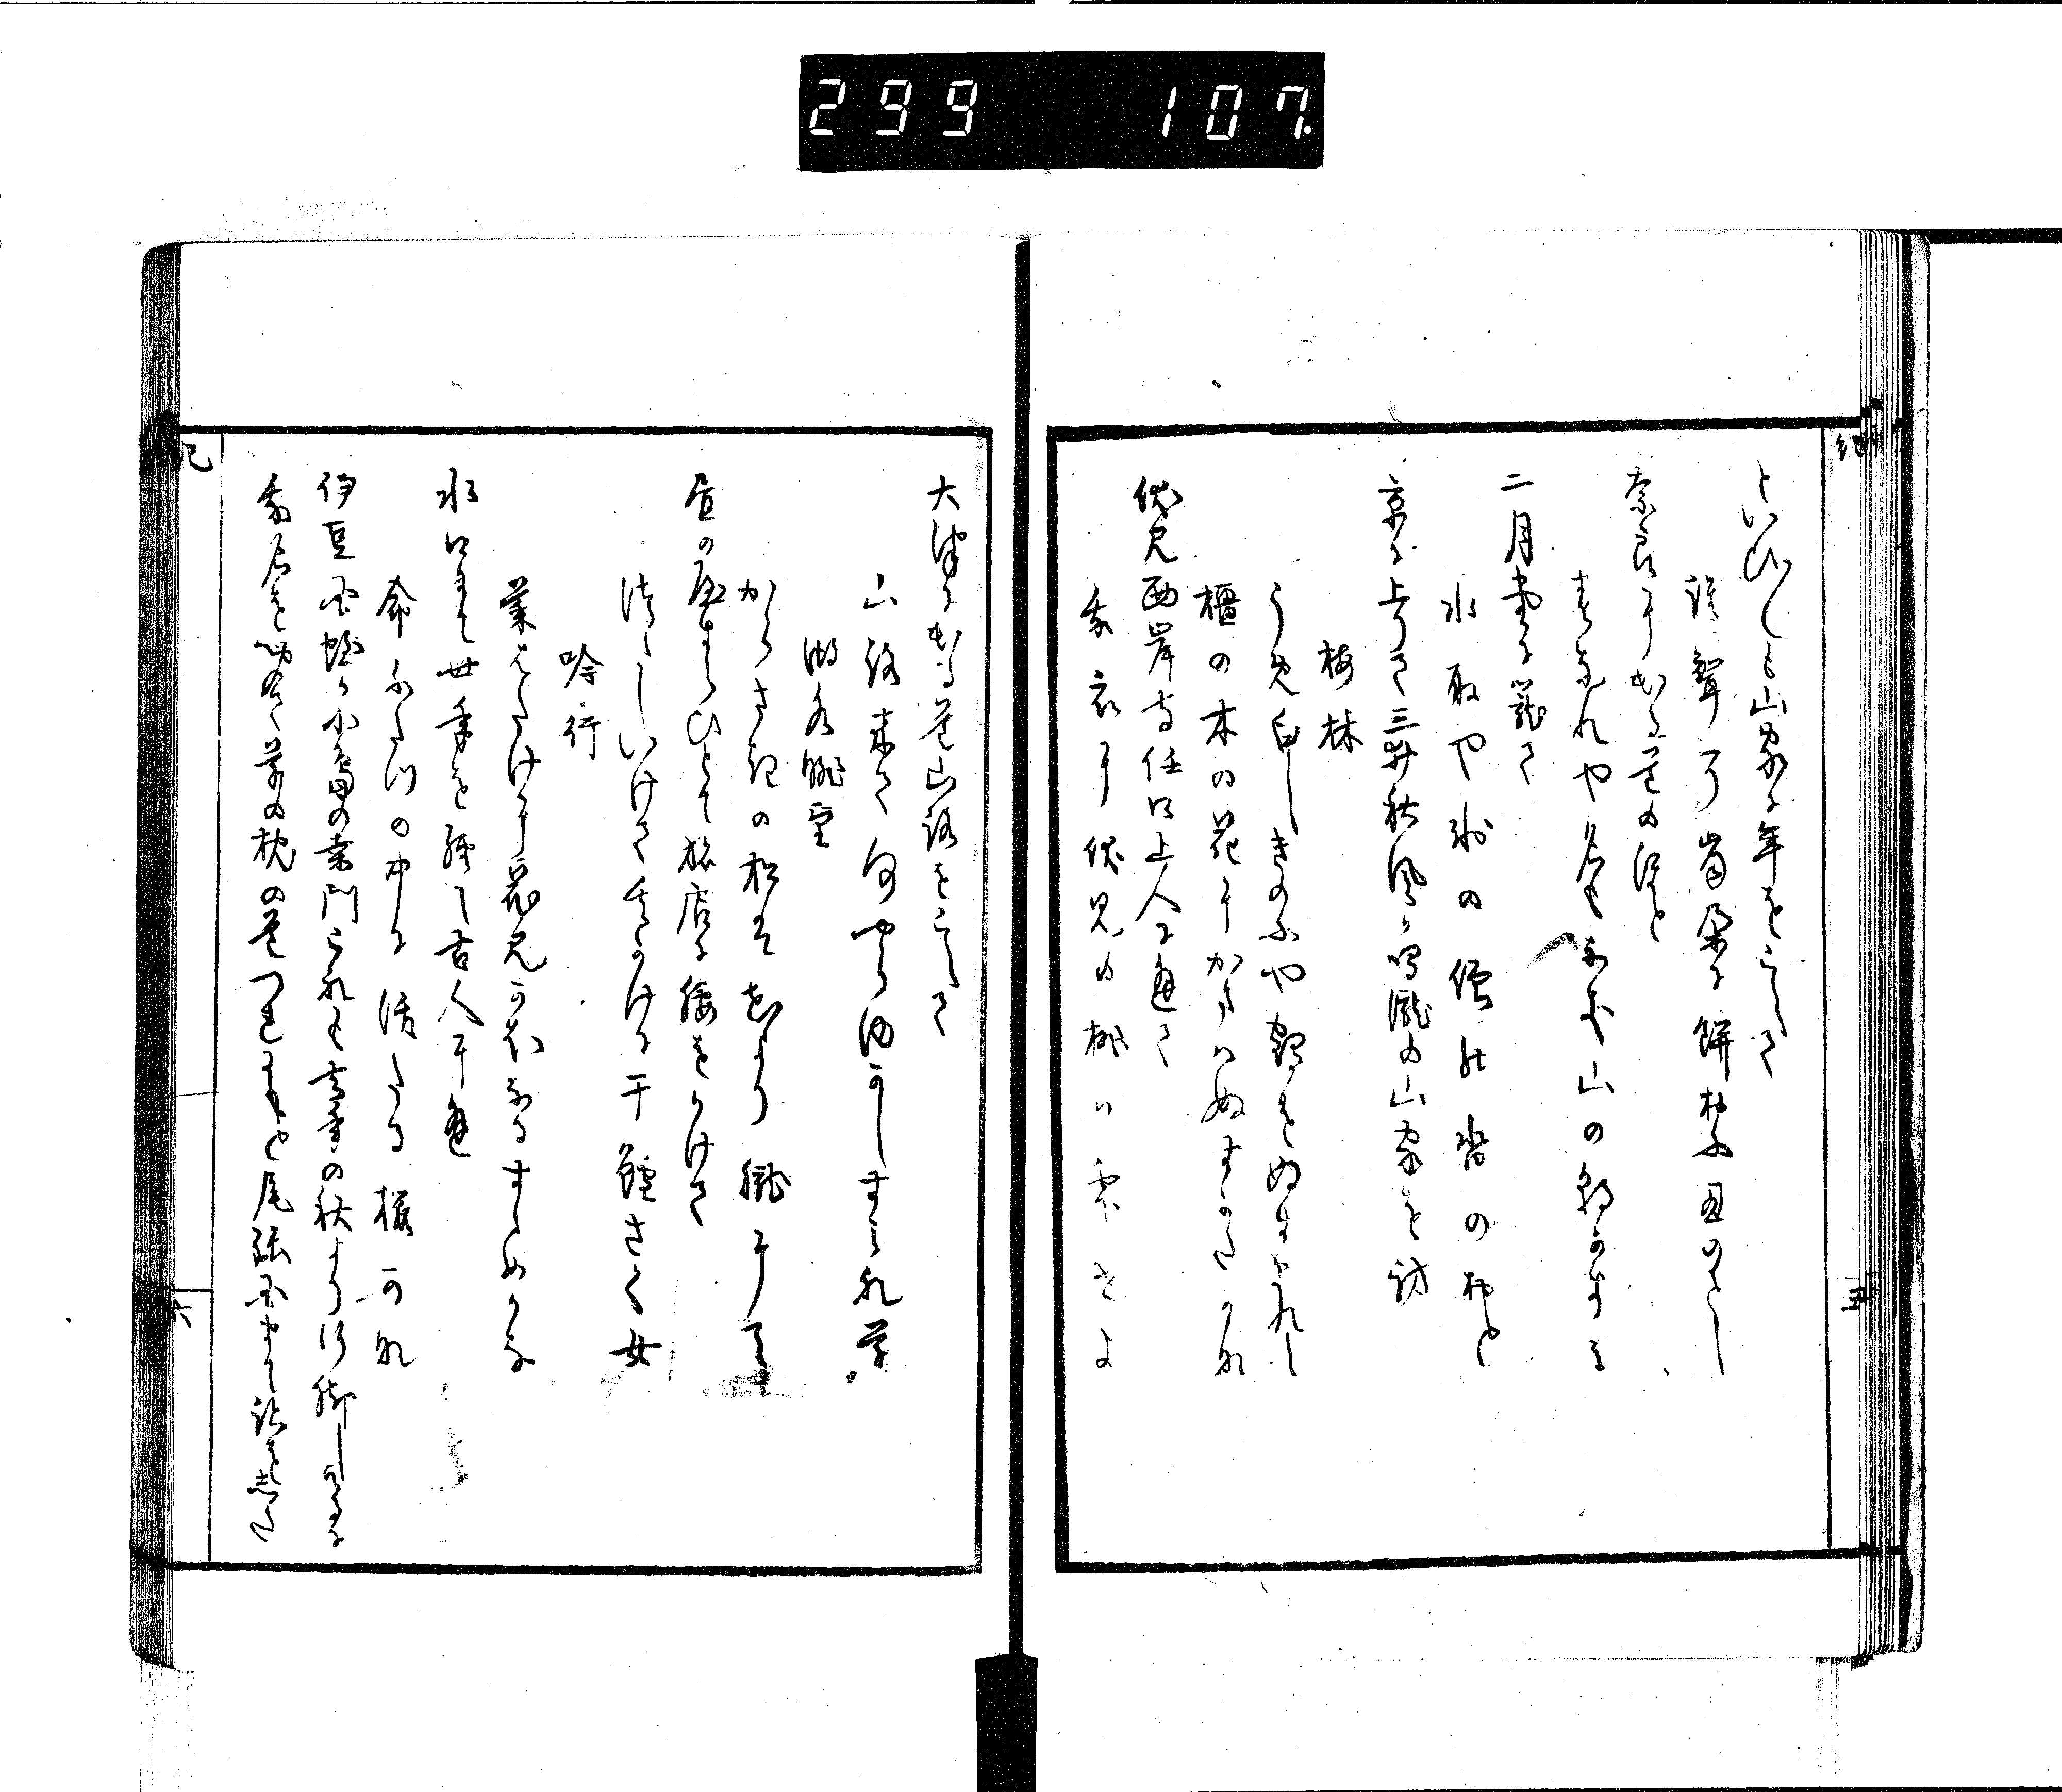 299 107.
といひ〳〵も山家に年をこして
誰聟そ歯朶に餅おふ丑のとし
奈良に出る道のほと
春なれや名もなき山の朝かすみ
二月堂に籠て
水取や氷の僧の沓のおと
京に上りて三井秋風か鳴瀧の山家を訪
梅林
うめ白しきのふや鶴をぬすまれし
樫の木の花にかまはぬすかたかな
伏見西岸寺任口上人に逢て
我衣に伏見の桃の雫せよ
五
大津に出る道山路をこえて
山路来て何やらゆかしすみれ草
湖水眺望
からさきの松は花より朧にて
昼の休らひとて旅店に腰をかけて
つゝしいけて其かけに干鱈さく女
吟行
菜はたけに花見かほなるすゝめかな
水口にて廿年を経て古人に逢
命ふたつの中に活たる桜かな
伊豆国蛭か小島の桑門これも去年の秋より行脚しけるに
我名を聞て草の枕の道つれにもと尾張国まて跡をしたひ
六